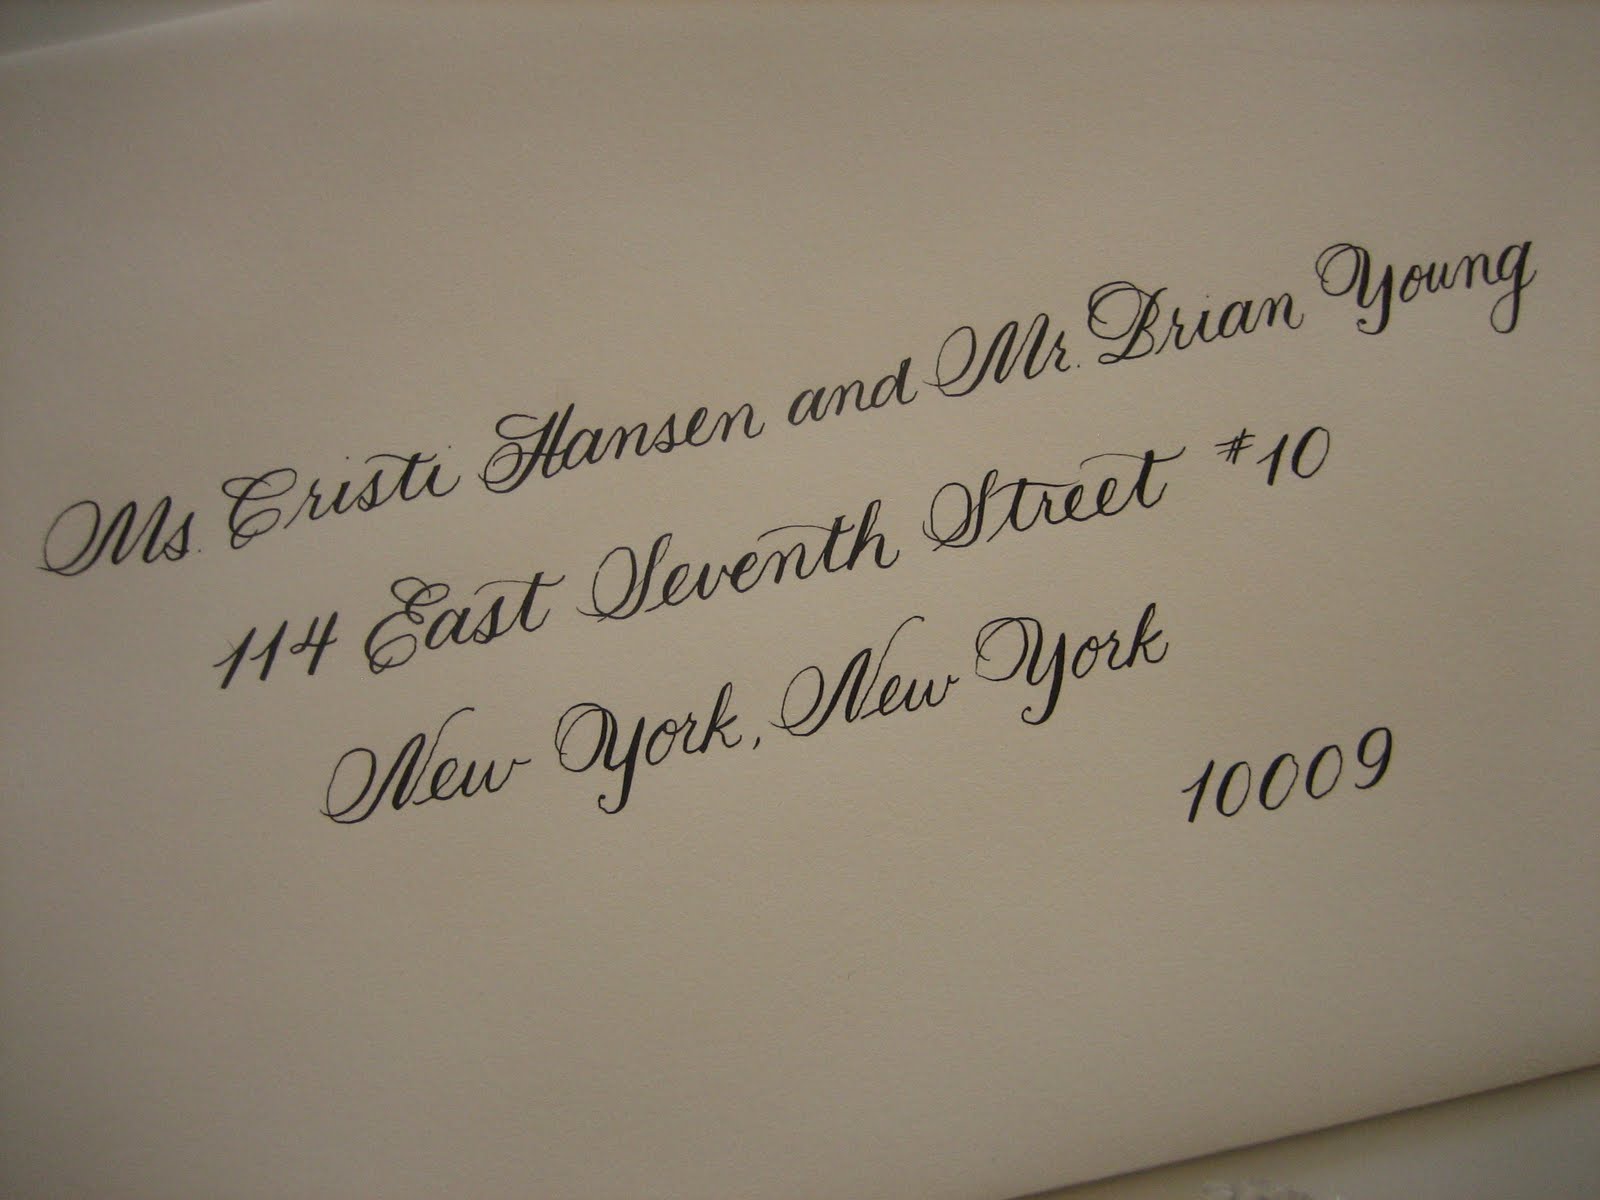 Ms. Cristi Hansen and Mr. Brian Young
114 East Seventh Street #10
New York, New York
10009